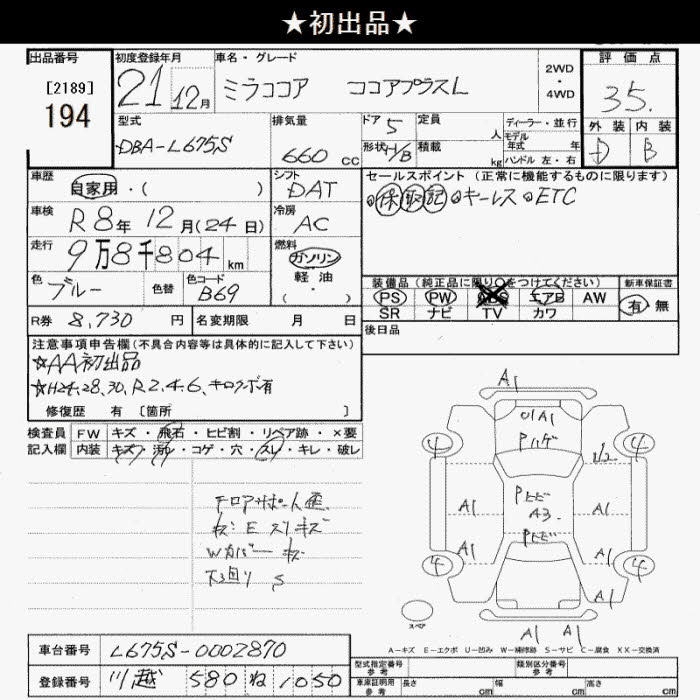 ★初出品★
出品番号
[2189]
194
初度登録年月
21年12月
車名・グレード
ミラココア ココアプラスL
2WD
・
4WD
評価点
3.5
外装 内装
D B
型式
DBA-L675S
排気量
660 cc
ドア 5
形状 H/B
定員 人
積載 kg
ディーラー・並行
モデル年式 年
ハンドル 左・右
車歴
自家用・( )
シフト
DAT
車検
R8年12月(24日)
冷房
AC
走行
9万8千804 km
燃料
ガソリン
軽油
( ・ )
色
ブルー
色替
色コード
B69
R券 8,730 円
名変期限 月 日
セールスポイント (正常に機能するものに限ります)
◎保取記 ◎キーレス ◎ETC
装備品 (純正品に限り○をつけてください)
PS PW ABS エアB AW
SR ナビ TV カワ
新車保証書
有 無
後日品
注意事項申告欄(不具合内容等は具体的に記入して下さい)
☆AA初出品
☆H24、28、30、R2、4、6、キロクボ有
修復歴 有 [箇所 ]
検査員 FW キズ・飛石・ヒビ割・リペア跡・×要
記入欄 内装 キズ・汚れ・コゲ・穴・スレ・キレ・破レ
キズ E スリキズ
Wカバー キズ
下回り S
A1
A1
Pハゲ
4 4
Pヒビ
A3
Pヒビ
A1 A1
A1 A1
4 4
A1
A1 A1
スペア
A-キズ E-エクボ U-凹み W-補修跡 S-サビ C-腐食 XX-交換済
車台番号 L675S-0002870
登録番号 川越 580 ね 1050
型式指定番号 参考
類別区分番号 参考
車庫証明用 参考 長さ cm 幅 cm 高さ cm